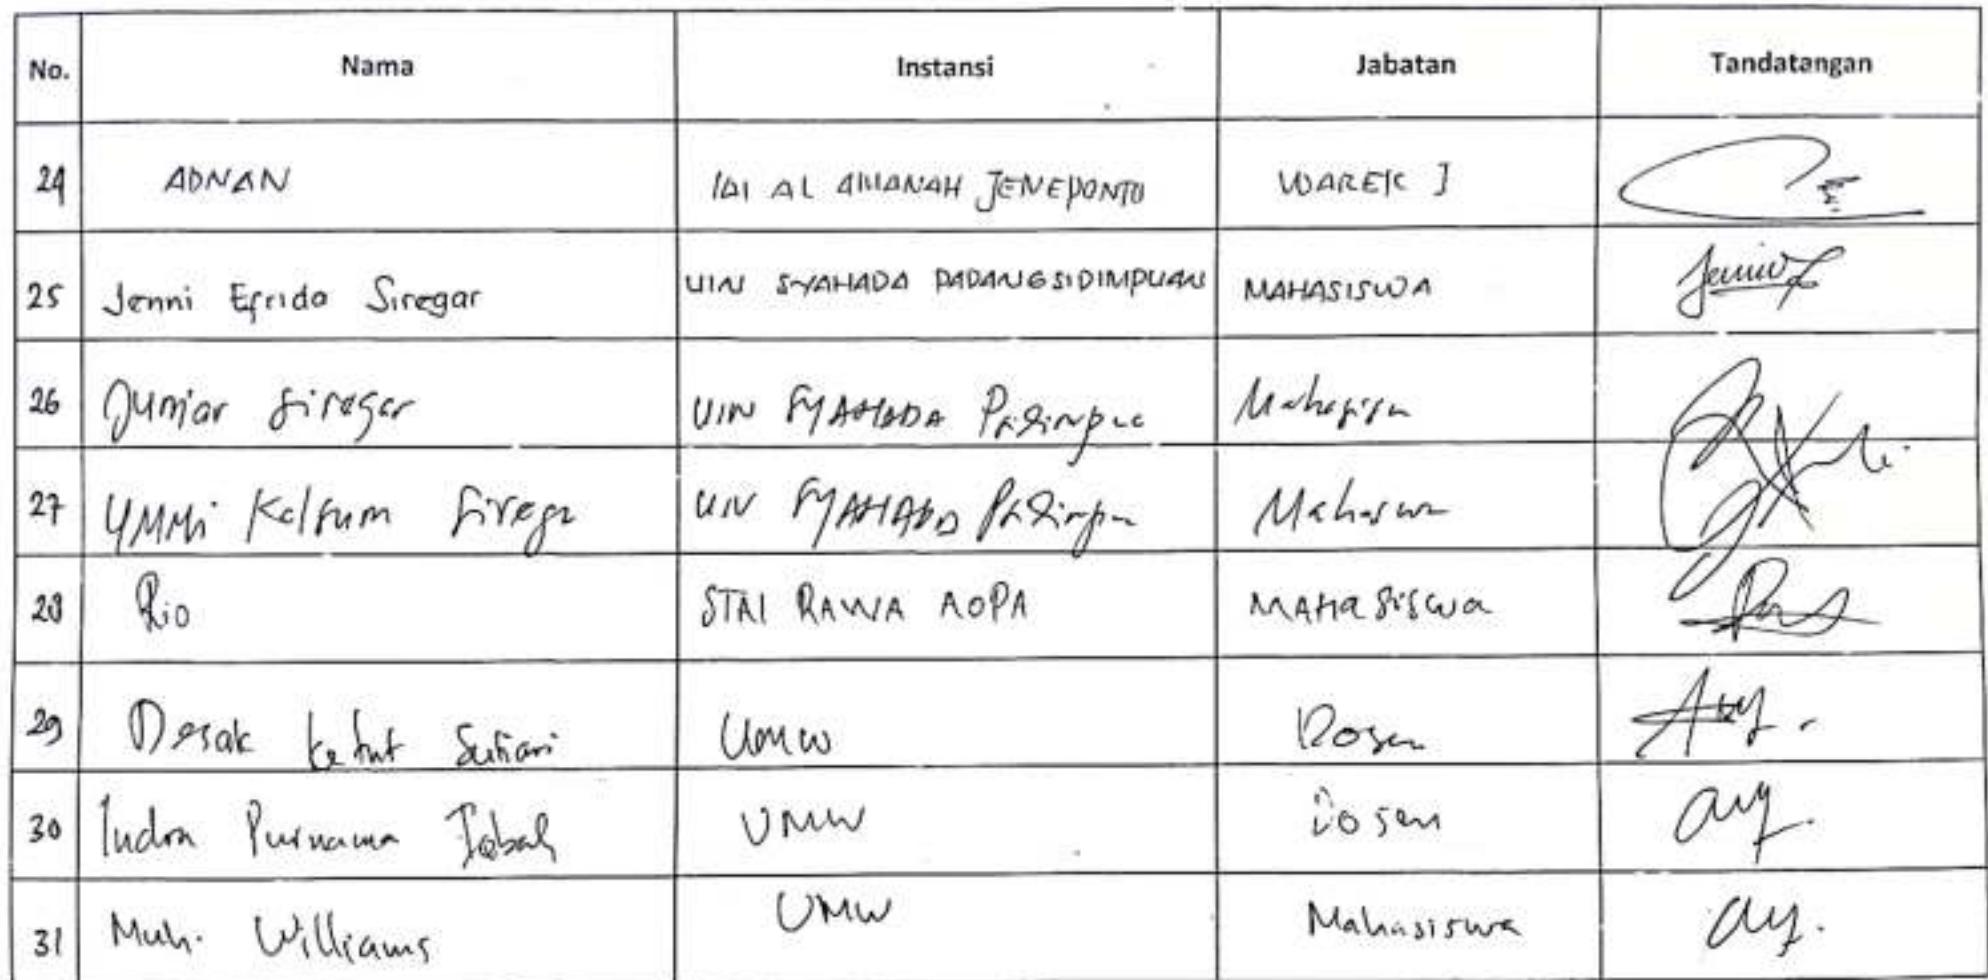 No. Nama Instansi Jabatan Tandatangan
24 ADNAN IAI AL AMANAH JENEPONTO WAREK I
25 Jenni Efrida Siregar UIN SYAHADA PADANGSIDIMPUAN MAHASISWA
26 Juniar Siregar UIN SYAHADA
27 Ummi Kalsum Siregar UIN SYAHADA
28 Rio STAI RAWA AOPA MAHASISWA
29 Desak Ketut Sutiari UMW Dosen
30 Indra Purnama Iqbal UMW Dosen
31 Muh. Williams UMW Mahasiswa